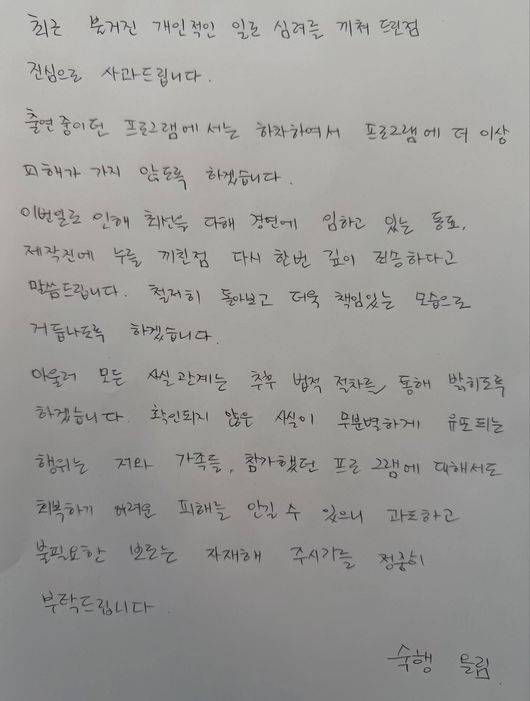 최근 불거진 개인적인 일로 심려를 끼쳐 드린점
진심으로 사과드립니다.
출연 중이던 프로그램에서는 하차하여서 프로그램에 더 이상
피해가 가지 않도록 하겠습니다.
이번일로 인해 최선을 다해 경연에 임하고 있는 동료,
제작진에 누를 끼친점 다시 한번 깊이 죄송하다고
말씀드립니다. 철저히 돌아보고 더욱 책임있는 모습으로
거듭나도록 하겠습니다.
아울러 모든 사실 관계는 추후 법적 절차를 통해 밝히도록
하겠습니다. 확인되지 않은 사실이 무분별하게 유포되는
행위는 저와 가족들, 참가했던 프로그램에 대해서도
회복하기 어려운 피해를 안길 수 있으니 과도하고
불필요한 보도는 자제해 주시기를 정중히
부탁드립니다
숙행 드림.